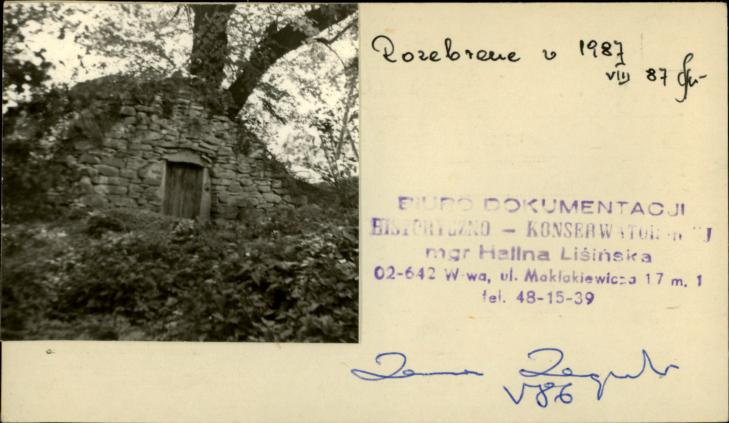 Rozebrane w 1987
VIII 87
BIURO DOKUMENTACJI
HISTORYCZNO – KONSERWATOR
mgr Halina Lisińska
02-642 W-wa, ul. Maklakiewicza 17 m. 1
tel. 48-15-39
V 86